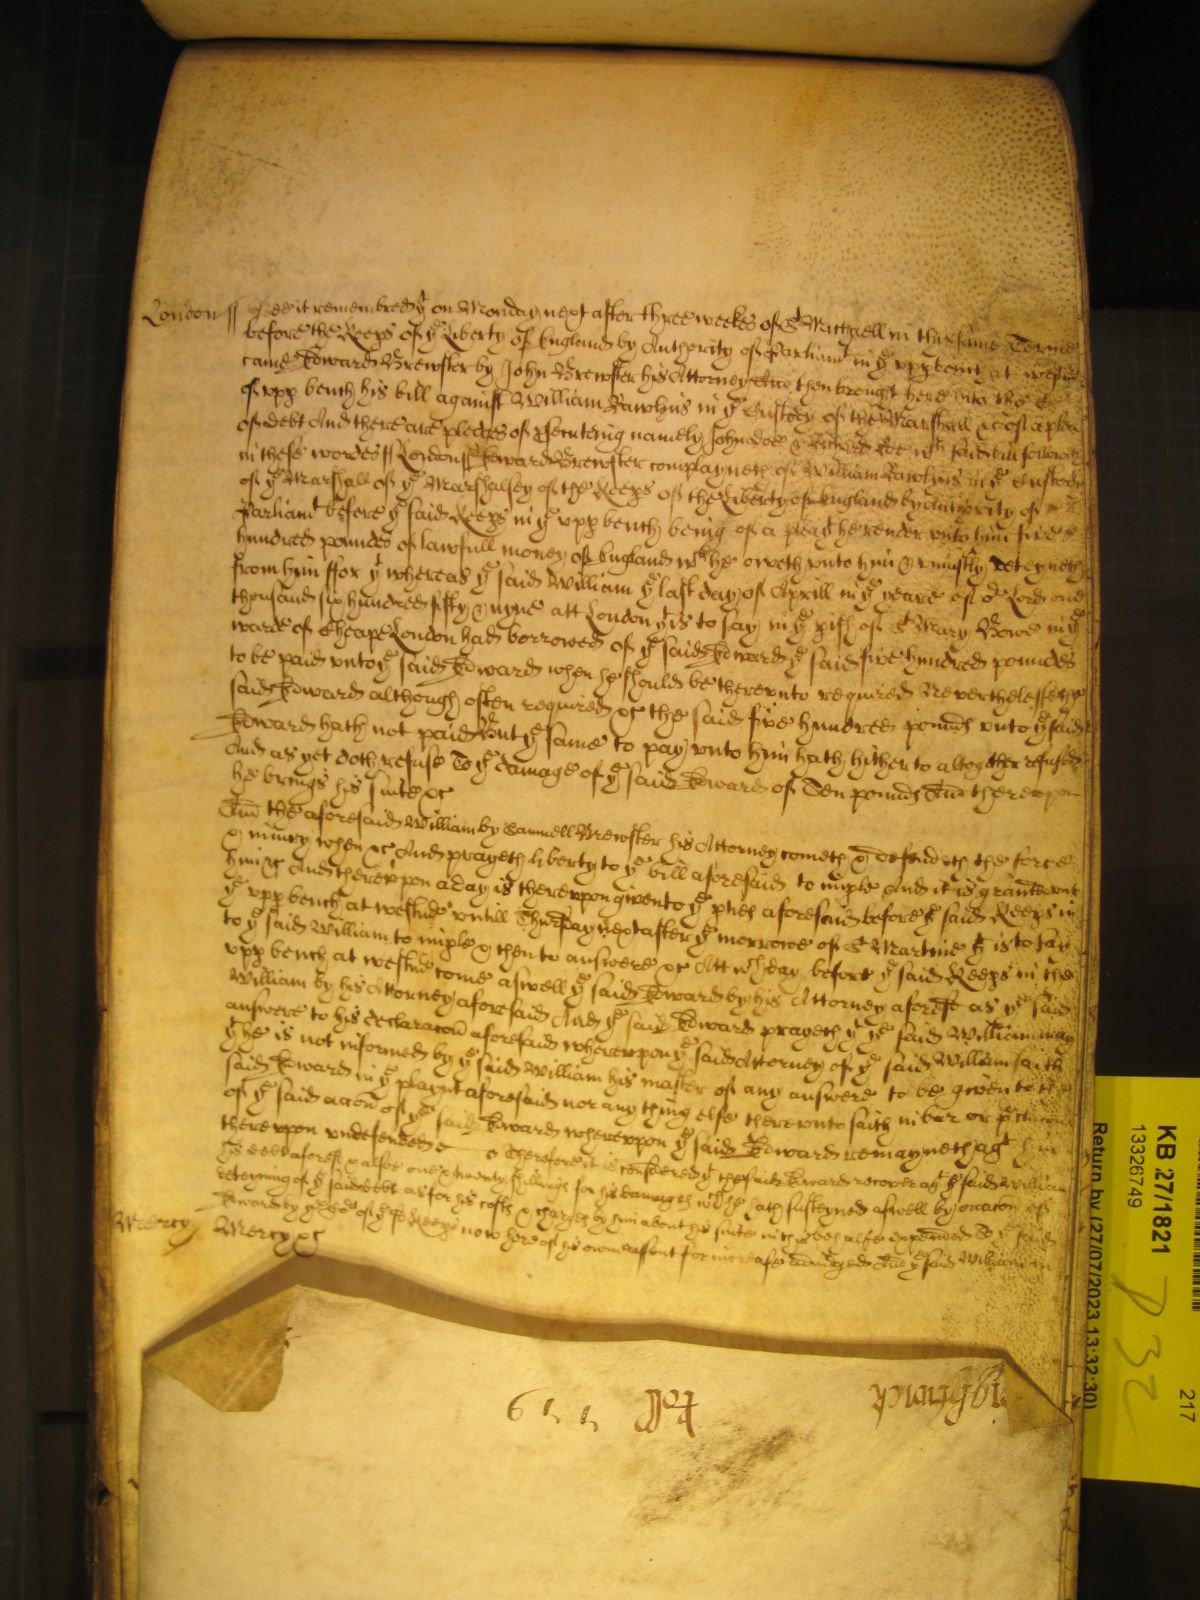 London ss Bee it remembred yt on Monday next after three weekes of St Michaell in this same Terme
before the Keeps of ye Liberty of England by Authority of Parliamt in ye upp bench at Westmr
came Edward Brewster by John Brewster his Attorney And then brought here into the Court
of upp bench his bill against William Rawlins in ye Custody of the Marshall &c of a plea
of debt And there are pledges of psecuting namely John Doe & Richard Roe wch said bill followeth
in these words ss London ss Edward Brewster complayneth of William Rawlins in ye Custody
of ye Marshall of ye Marshalsey of the Keeps of the Liberty of England by authority of
Parliamt before ye said Keeps in ye upp bench being of a plea yt he render unto him five
hundred pounds of lawfull money of England wch he oweth unto him & uniustly deteyneth
from him ffor yt whereas ye said William ye last day of Aprill in ye yeare of or Lord one
thousand six hundred fifty & nyne att London yt is to say in ye pish of St Mary Bowe in ye
warde of Cheape London had borrowed of ye said Edward ye said five hundred pounds
to be paid unto ye said Edward when he should be thereunto required Neverthelesse the
said Edward although often required &c the said five hundred pounds unto ye said
Edward hath not paid But ye same to pay unto him hath hitherto altogether refused
And as yet doth refuse To ye damage of ye said Edward of Ten pounds And thereupon
he brings his suite &c
And the aforesaid William by Samuell Brewster his Attorney cometh & defendeth the force
& iniury when &c And prayeth liberty to ye bill aforesaid to imple And it is graunted unto
him &c And thereupon a day is thereupon given to ye pties aforesaid before ye said Keeps in
ye upp bench at Westmr untill Thursday next after ye morrowe of St Martine yt is to say
to ye said William to imple & then to answere &c Att wch day before ye said Keeps in the
upp bench at Westmr come aswell ye said Edward by his Attorney aforesd as ye said
William by his Attorney aforesaid And ye said Edward prayeth yt ye said William may
answere to his declaracon aforesaid whereupon ye said Attorney of ye said William saith
yt he is not informed by ye said William his master of any answere to be given to the
said Edward in ye playnt aforesaid nor any thing else thereunto saith in bar or
of ye said accon of ye said Edward whereupon ye said Edward remayneth agt him
thereupon undefended &c Therefore it is considered yt the said Edward recover agt ye said William
his debt aforesd & alsoe one & twenty shillings for his damages wch he hath susteyned aswell by occacon of
deteyning of ye said debt as for his costs & charges by him about his suite in this behalfe expended To ye said
Edward by ye of ye sd Keeps now here of his owne assent for increase adiudged And ye said William in
Mercy Mercy &c
KB 27/1821
13326749
217
Return by (27/07/2023 13:32:30)
P 32